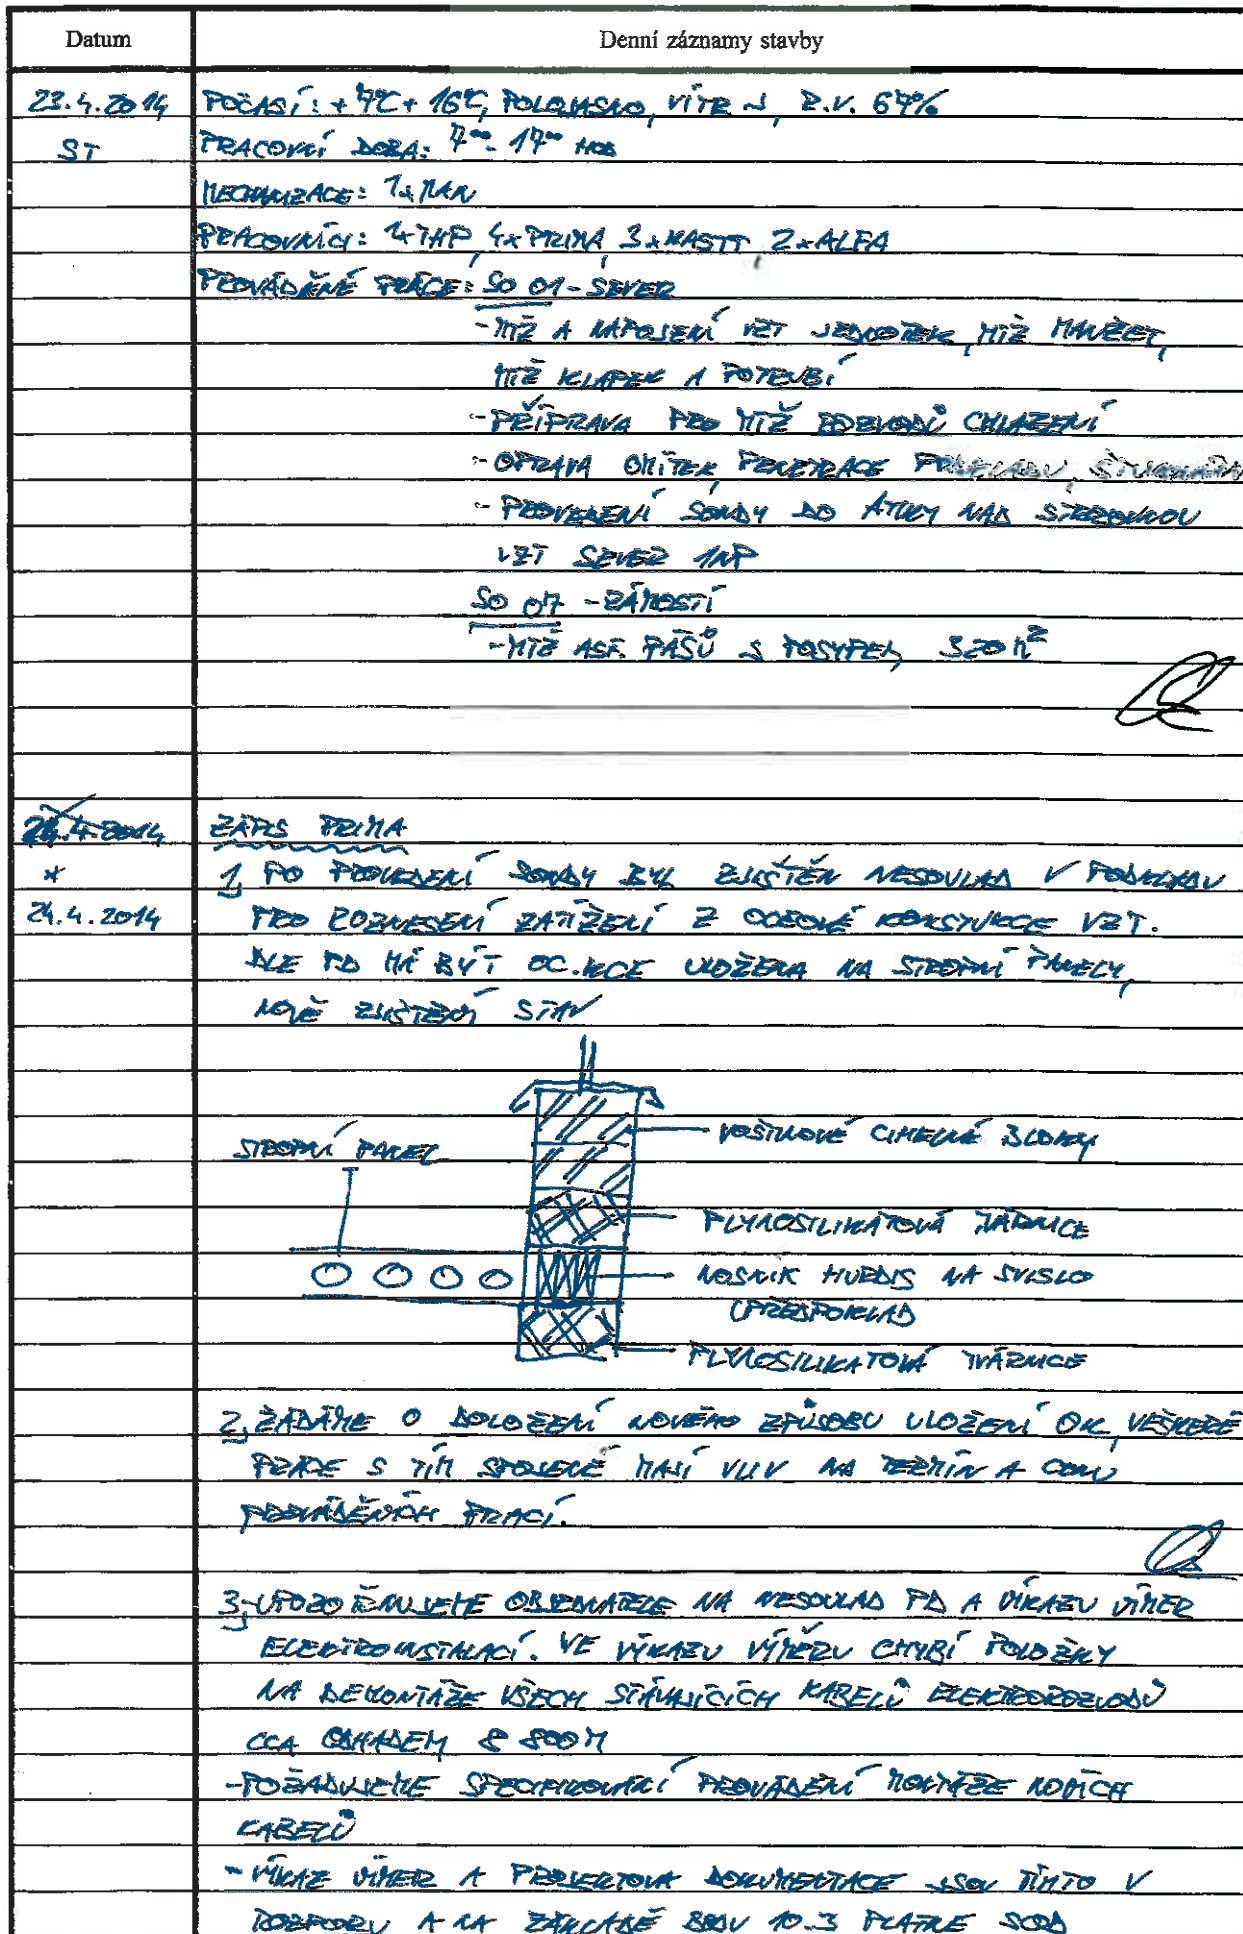 Datum
Denní záznamy stavby
23.4.2014 POČASÍ: +7°C + 16°C, POLOJASNO, VÍTR J, R.V. 67%
ST PRACOVNÍ DOBA: 7⁰⁰ - 17⁰⁰ HOD
MECHANIZACE: 1x MAN
PRACOVNÍCI: 4xTHP, 4x PRIMA, 3x MASTT, 2x ALFA
PROVÁDĚNÉ PRÁCE: SO 01 - SEVER
- MTŽ A NAPOJENÍ VZT JEDNOTEK, MTŽ MANŽET,
MTŽ KLAPEK A POTRUBÍ
- PŘÍPRAVA PRO MTŽ ROZVODŮ CHLAZENÍ
- OPRAVA OMÍTEK, PENETRACE PODKLADU,
- PROVEDENÍ SONDY DO ATIKY NAD STROJOVNOU
VZT SEVER 1NP
SO 07 - ZÁMOSTÍ
- MTŽ ASF. PÁSŮ S POSYPEM, 320 M²
24.4.2014 ZÁPIS PRIMA
* 1, PO PROVEDENÍ SONDY BYL ZJIŠTĚN NESOULAD V PODKLADU
24.4.2014 PRO ROZNESENÍ ZATÍŽENÍ Z OCELOVÉ KONSTUKCE VZT.
DLE PD MÁ BÝT OC. KCE ULOŽENA NA STROPNÍ PANELY,
NOVĚ ZJIŠTĚNÝ STAV
VOŠTINOVÉ CIHELNÉ BLOKY
STROPNÍ PANEL
PLYNOSILIKÁTOVÁ TVÁRNICE
NOSNÍK HURDIS NA SVISLO
(PŘEDPOKLAD
PLYNOSILIKATOVÁ TVÁRNICE
2, ŽÁDÁME O DOLOŽENÍ NOVÉHO ZPŮSOBU ULOŽENÍ OK, VEŠKERÉ
PRÁCE S TÍM SPOJENÉ MAJÍ VLIV NA TERMÍN A CENU
PROVÁDĚNÝCH PRACÍ.
3, UPOZORŇUJEME OBJEDNATELE NA NESOULAD PD A VÝKAZU VÝMĚR
ELEKTROINSTALACÍ. VE VÝKAZU VÝMĚRU CHYBÍ POLOŽKY
NA DEMONTÁŽE VŠECH STÁVAJÍCÍCH KABELŮ ELEKTROROZVODŮ
CCA ODHADEM 8 800 M
- POŽADUJEME SPECIFIKOVÁNÍ PROVÁDĚNÍ MONTÁŽE NOVÝCH
KABELŮ
- VÝKAZ VÝMĚR A PROJEKTOVÁ DOKUMENTACE JSOU TÍMTO V
ROZPORU A NA ZÁKLADĚ BODU 10.3 PLATNÉ SOD